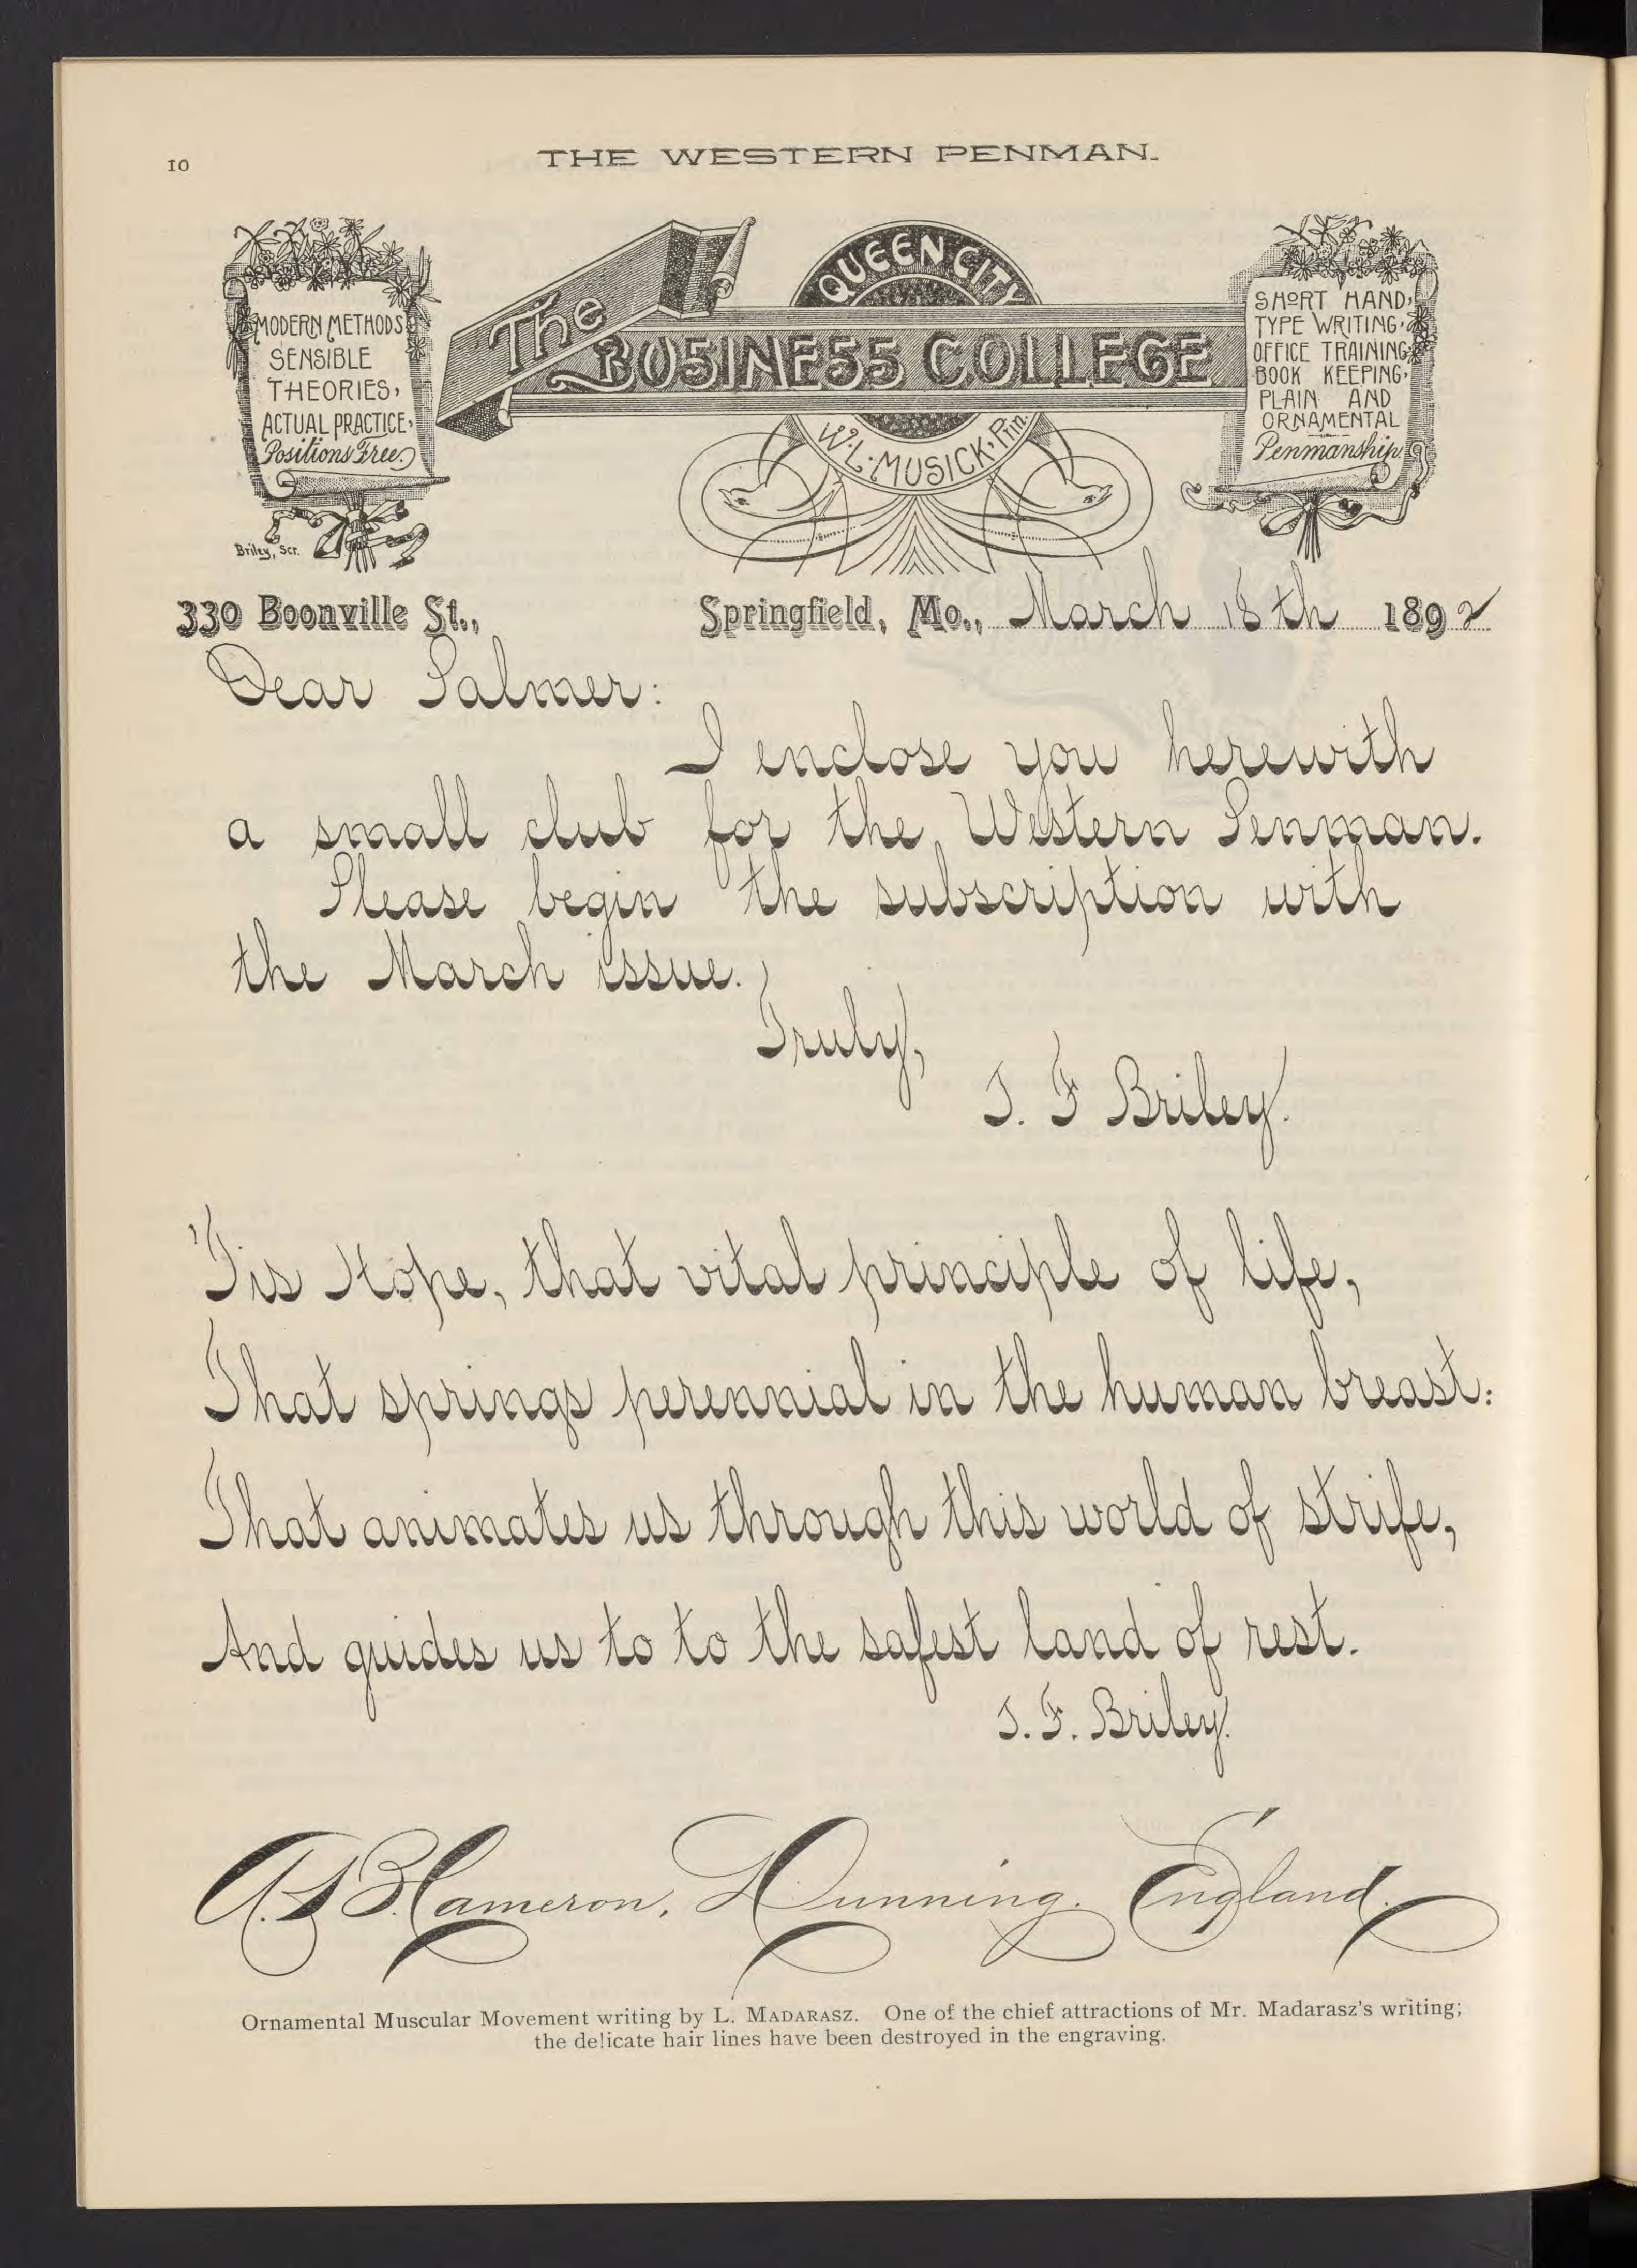 10
THE WESTERN PENMAN.
MODERN METHODS
SENSIBLE
THEORIES,
ACTUAL PRACTICE,
Positions Free.
Briley, Scr.
The
QUEEN CITY
BUSINESS COLLEGE
W.L. MUSICK, Prin.
SHORT HAND,
TYPE WRITING,
OFFICE TRAINING,
BOOK KEEPING,
PLAIN AND
ORNAMENTAL
Penmanship
330 Boonville St., Springfield, Mo., March 18th 1892
Dear Palmer:
I enclose you herewith
a small club for the Western Penman.
Please begin the subscription with
the March issue.
Truly,
J. F Briley.
'Tis Hope, that vital principle of life,
That springs perennial in the human breast:
That animates us through this world of strife,
And guides us to to the safest land of rest.
J. F. Briley.
A. S. B. Cameron, Dunning. England.
Ornamental Muscular Movement writing by L. MADARASZ. One of the chief attractions of Mr. Madarasz's writing;
the delicate hair lines have been destroyed in the engraving.